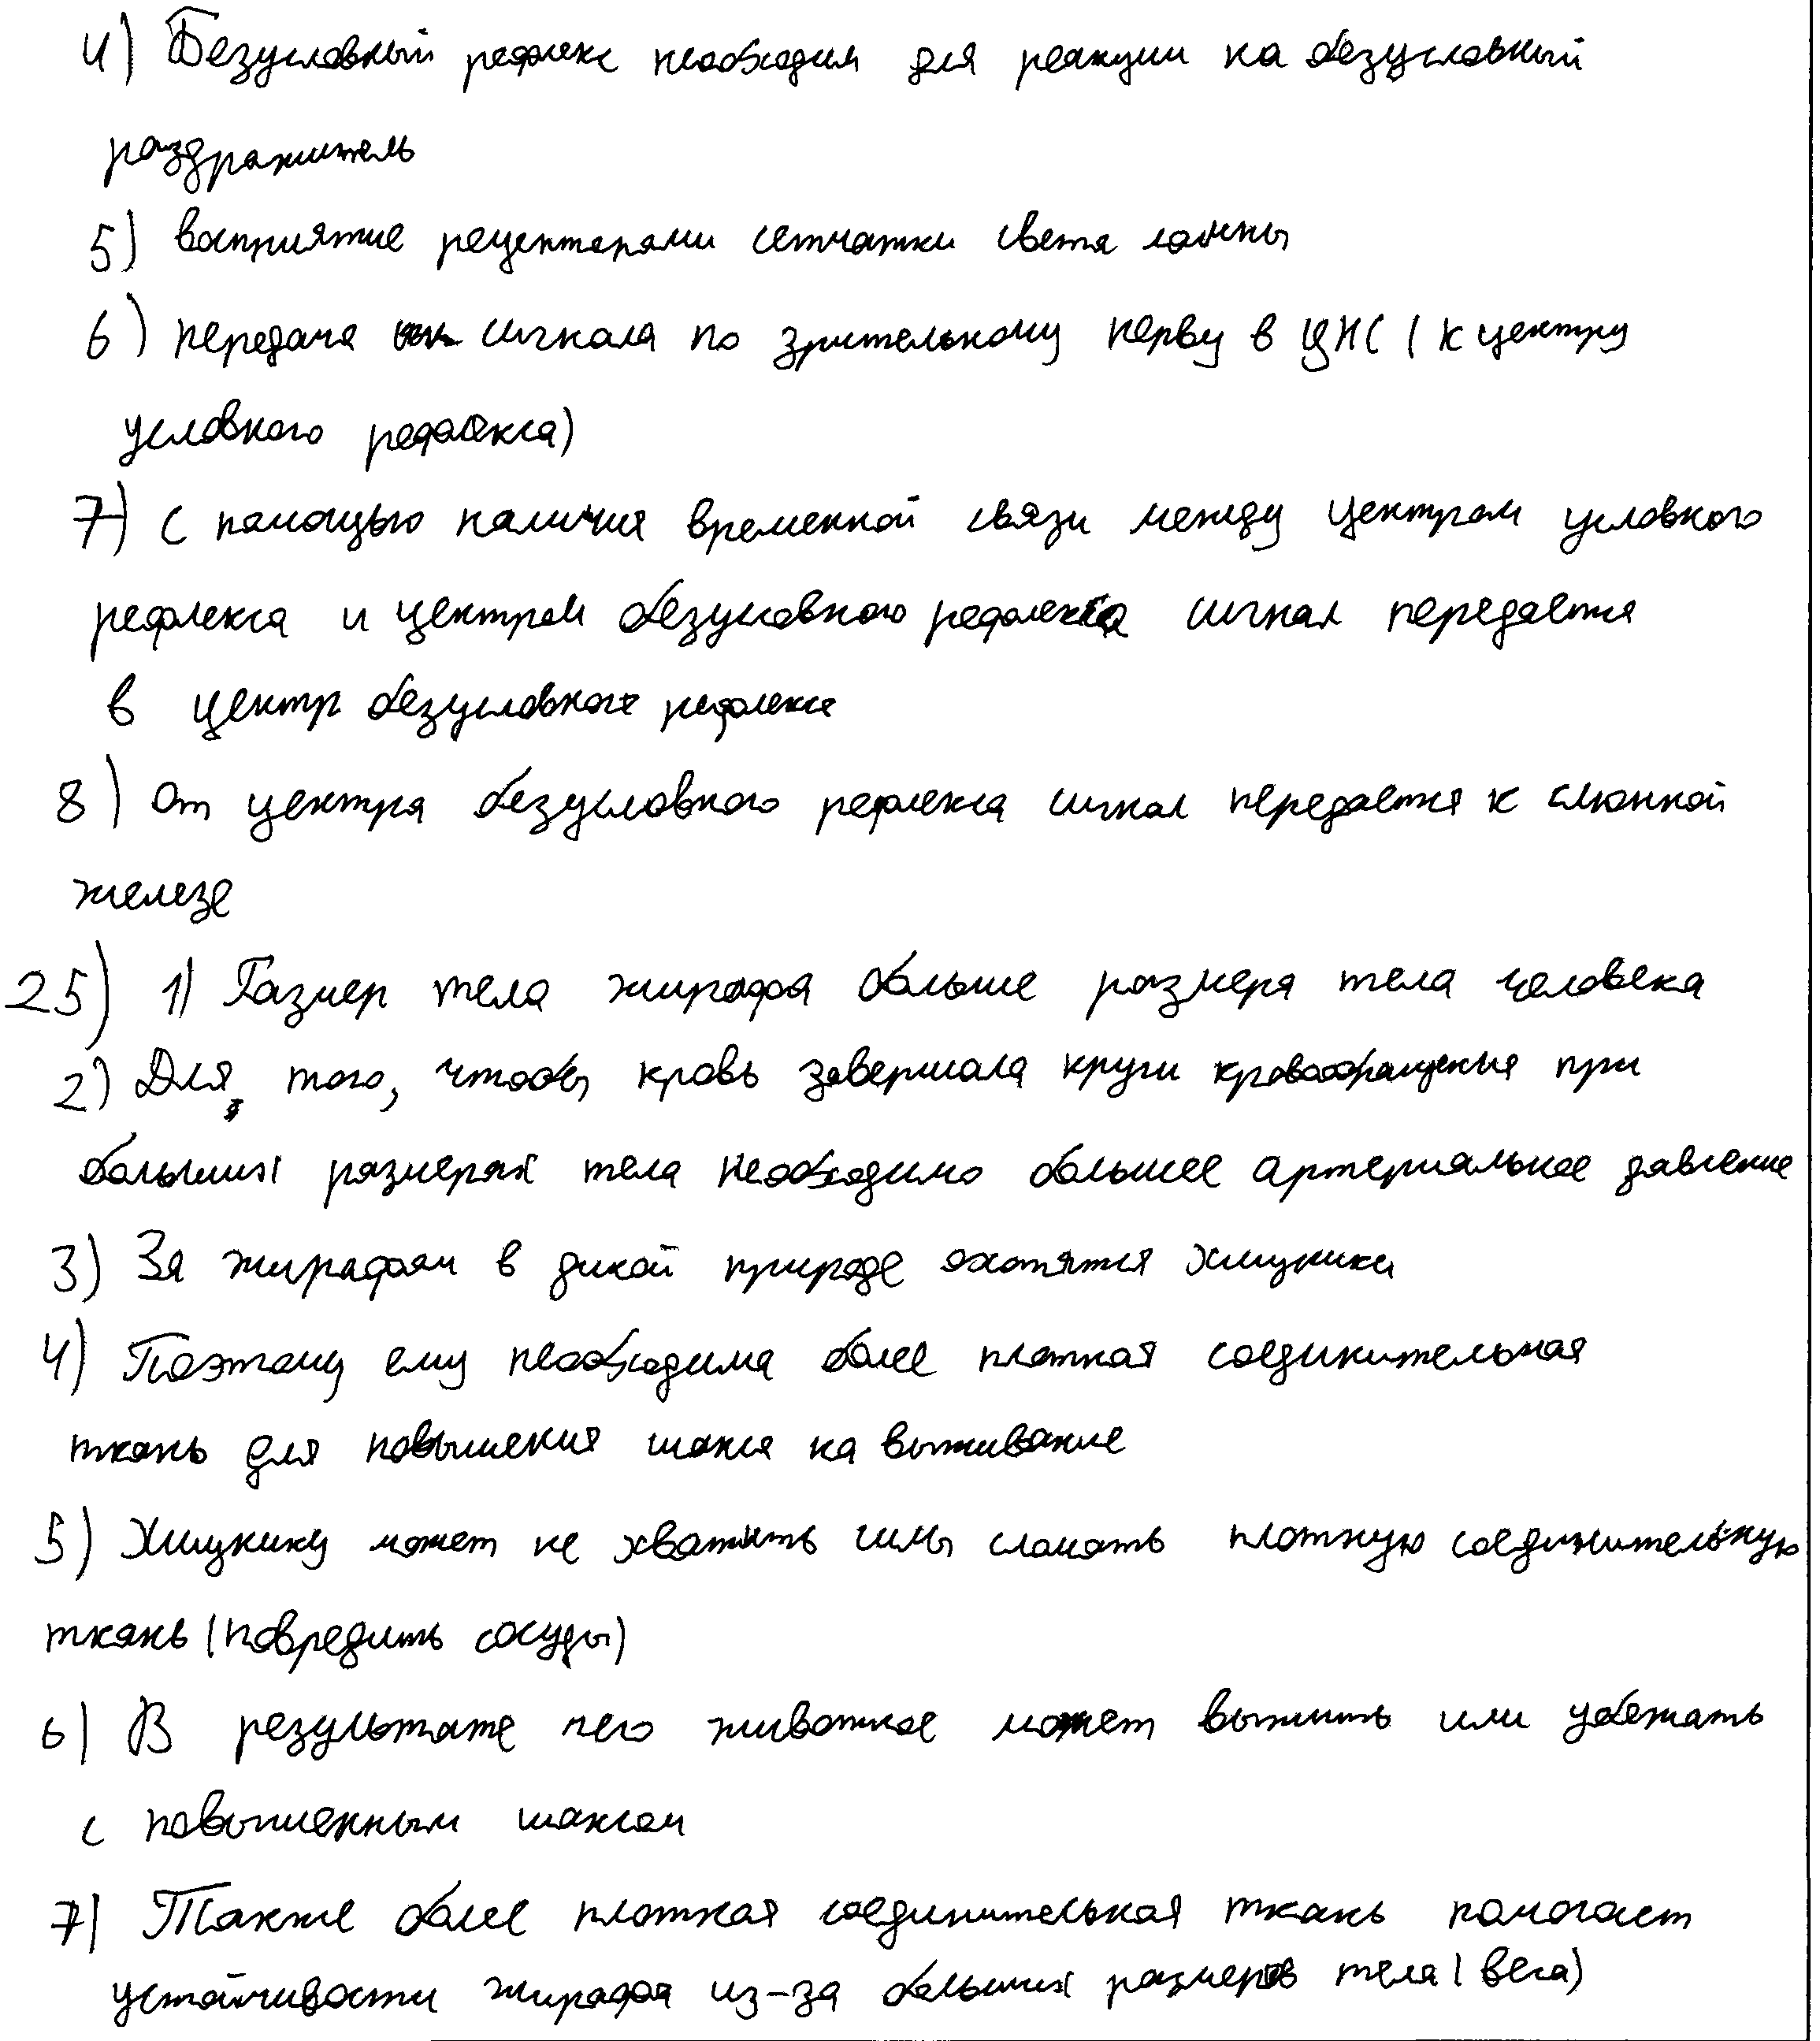 4) Безусловный рефлекс необходим для реакции на безусловный
раздражитель
5) восприятие рецепторами сетчатки света лампы
6) передача сигнала по зрительному нерву в ЦНС (к центру
условного рефлекса)
7) с помощью наличия временной связи между центром условного
рефлекса и центром безусловного рефлекса сигнал передается
в центр безусловного рефлекса
8) От центра безусловного рефлекса сигнал передается к слюнной
железе
25) 1) Размер тела жирафа больше размера тела человека
2) Для того, чтобы кровь завершала круги кровообращения при
больших размерах тела необходимо большее артериальное давление
3) За жирафом в дикой природе охотятся хищники
4) Поэтому ему необходима более плотная соединительная
ткань для повышения шанса на выживание
5) Хищнику может не хватить силы сломать плотную соединительную
ткань (повредить сосуды)
6) В результате чего животное может выжить или убежать
с повышенным шансом
7) Также более плотная соединительная ткань помогает
устойчивости жирафа из-за больших размеров тела (веса)